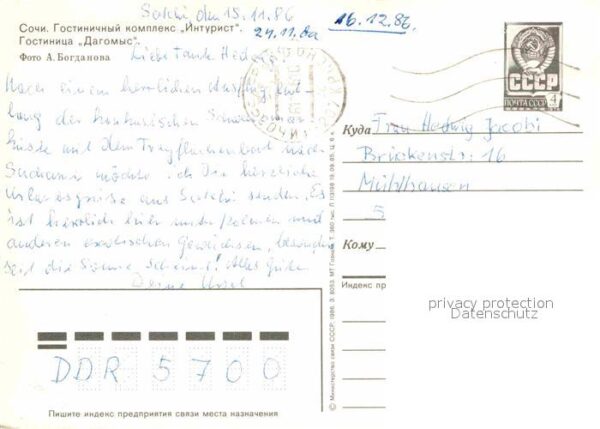 Сочи. Гостиничный комплекс „Интурист".
Гостиница „Дагомыс".
Фото А.Богданова
Sotchi, den 18.11.86
24.11.86
16.12.86
Liebe Tante Hedwig!
Nach einem herrlichen Ausflug ent-
lang der kaukasischen Schwarzmeer-
küste mit dem Tragflächenboot nach
Suchumi möchte ich Dir herzliche
Urlaubsgrüße aus Sotchi senden. Es
ist herrlich hier unter Palmen und
anderen exotischen Gewächsen, besonders
seit die Sonne scheint! Alles Gute
Deine Ursel
СССР
ПОЧТА СССР 4
Куда Frau Hedwig Jacobi
Brückenstr. 16
Mühlhausen
5
Кому
Индекс пр
privacy protection
Datenschutz
DDR 5700
Пишите индекс предприятия связи места назначения
© Министерство связи СССР, 1986.